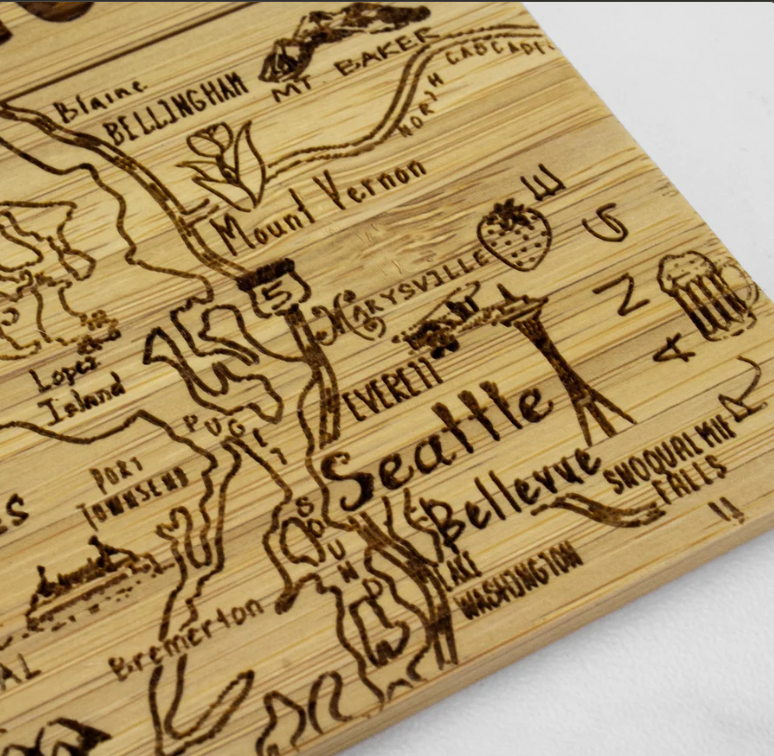 MT. BAKER
CASCADE
NORTH
Blaine
BELLINGHAM
Mount Vernon
5
MARYSVILLE
EVERETT
Lopez
Island
PUGET
SOUND
Seattle
Bellevue
SNOQUALMIE
FALLS
PORT
TOWNSEND
LAKE
WASHINGTON
Bremerton
RANGE